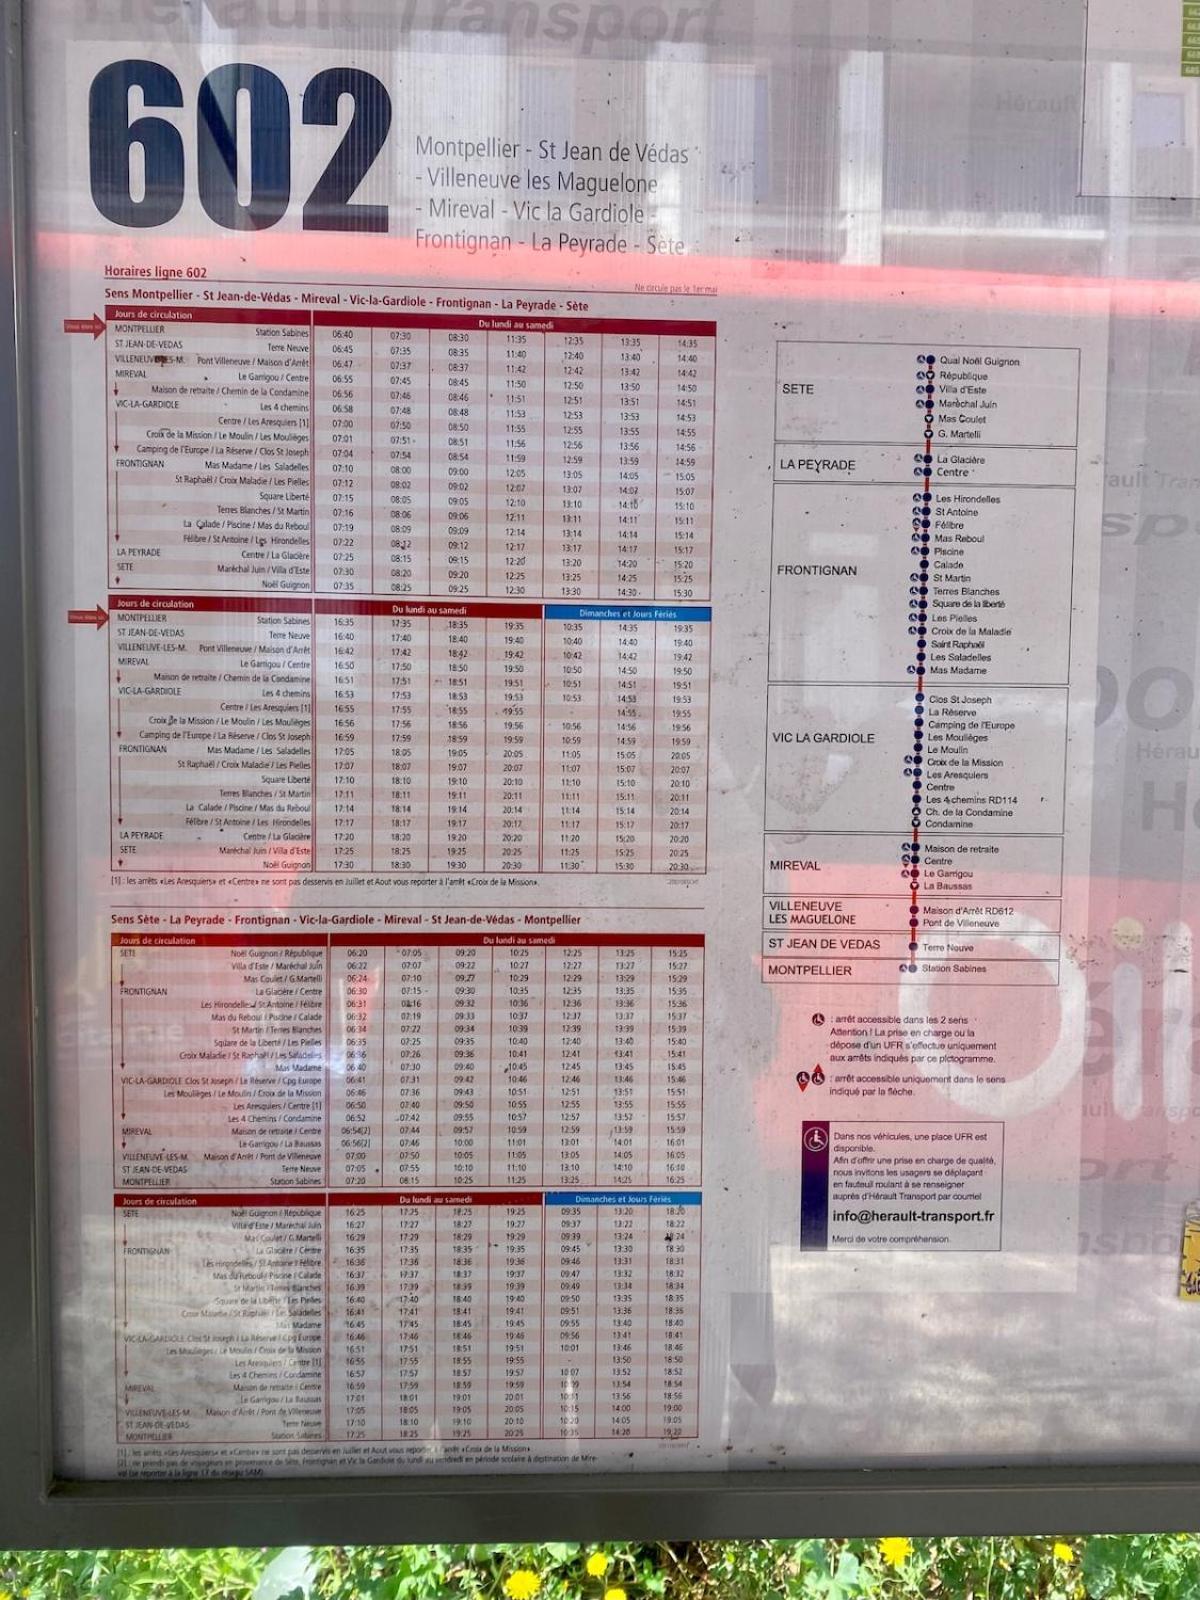 Hérault Transport
602
Montpellier - St Jean de Védas
- Villeneuve les Maguelone
- Mireval - Vic la Gardiole -
Frontignan - La Peyrade - Sète
Horaires ligne 602
Ne circule pas le 1er mai
Sens Montpellier - St Jean-de-Védas - Mireval - Vic-la-Gardiole - Frontignan - La Peyrade - Sète
Jours de circulation Du lundi au samedi
MONTPELLIER Station Sabines 06:40 07:30 08:30 11:35 12:35 13:35 14:35
ST JEAN-DE-VEDAS Terre Neuve 06:45 07:35 08:35 11:40 12:40 13:40 14:40
VILLENEUVE-LES-M. Pont Villeneuve / Maison d'Arrêt 06:47 07:37 08:37 11:42 12:42 13:42 14:42
MIREVAL Le Garrigou / Centre 06:55 07:45 08:45 11:50 12:50 13:50 14:50
Maison de retraite / Chemin de la Condamine 06:56 07:46 08:46 11:51 12:51 13:51 14:51
VIC-LA-GARDIOLE Les 4 chemins 06:58 07:48 08:48 11:53 12:53 13:53 14:53
Centre / Les Aresquiers [1] 07:00 07:50 08:50 11:55 12:55 13:55 14:55
Croix de la Mission / Le Moulin / Les Moulièges 07:01 07:51 08:51 11:56 12:56 13:56 14:56
Camping de l'Europe / La Réserve / Clos St Joseph 07:04 07:54 08:54 11:59 12:59 13:59 14:59
FRONTIGNAN Mas Madame / Les Saladelles 07:10 08:00 09:00 12:05 13:05 14:05 15:05
St Raphaël / Croix Maladie / Les Pielles 07:12 08:02 09:02 12:07 13:07 14:07 15:07
Square Liberté 07:15 08:05 09:05 12:10 13:10 14:10 15:10
Terres Blanches / St Martin 07:16 08:06 09:06 12:11 13:11 14:11 15:11
La Calade / Piscine / Mas du Reboul 07:19 08:09 09:09 12:14 13:14 14:14 15:14
Félibre / St Antoine / Les Hirondelles 07:22 08:12 09:12 12:17 13:17 14:17 15:17
LA PEYRADE Centre / La Glacière 07:25 08:15 09:15 12:20 13:20 14:20 15:20
SETE Maréchal Juin / Villa d'Este 07:30 08:20 09:20 12:25 13:25 14:25 15:25
Noël Guignon 07:35 08:25 09:25 12:30 13:30 14:30 15:30
Jours de circulation Du lundi au samedi Dimanches et Jours Fériés
MONTPELLIER Station Sabines 16:35 17:35 18:35 19:35 10:35 14:35 19:35
ST JEAN-DE-VEDAS Terre Neuve 16:40 17:40 18:40 19:40 10:40 14:40 19:40
VILLENEUVE-LES-M. Pont Villeneuve / Maison d'Arrêt 16:42 17:42 18:42 19:42 10:42 14:42 19:42
MIREVAL Le Garrigou / Centre 16:50 17:50 18:50 19:50 10:50 14:50 19:50
Maison de retraite / Chemin de la Condamine 16:51 17:51 18:51 19:51 10:51 14:51 19:51
VIC-LA-GARDIOLE Les 4 chemins 16:53 17:53 18:53 19:53 10:53 14:53 19:53
Centre / Les Aresquiers [1] 16:55 17:55 18:55 19:55 - 14:55 19:55
Croix de la Mission / Le Moulin / Les Moulièges 16:56 17:56 18:56 19:56 10:56 14:56 19:56
Camping de l'Europe / La Réserve / Clos St Joseph 16:59 17:59 18:59 19:59 10:59 14:59 19:59
FRONTIGNAN Mas Madame / Les Saladelles 17:05 18:05 19:05 20:05 11:05 15:05 20:05
St Raphaël / Croix Maladie / Les Pielles 17:07 18:07 19:07 20:07 11:07 15:07 20:07
Square Liberté 17:10 18:10 19:10 20:10 11:10 15:10 20:10
Terres Blanches / St Martin 17:11 18:11 19:11 20:11 11:11 15:11 20:11
La Calade / Piscine / Mas du Reboul 17:14 18:14 19:14 20:14 11:14 15:14 20:14
Félibre / St Antoine / Les Hirondelles 17:17 18:17 19:17 20:17 11:17 15:17 20:17
LA PEYRADE Centre / La Glacière 17:20 18:20 19:20 20:20 11:20 15:20 20:20
SETE Maréchal Juin / Villa d'Este 17:25 18:25 19:25 20:25 11:25 15:25 20:25
Noël Guignon 17:30 18:30 19:30 20:30 11:30 15:30 20:30
[1] : les arrêts «Les Aresquiers» et «Centre» ne sont pas desservis en Juillet et Aout vous reporter à l'arrêt «Croix de la Mission».
Sens Sète - La Peyrade - Frontignan - Vic-la-Gardiole - Mireval - St Jean-de-Védas - Montpellier
Jours de circulation Du lundi au samedi
SETE Noël Guignon / République 06:20 07:05 09:20 10:25 12:25 13:25 15:25
Villa d'Este / Maréchal Juin 06:22 07:07 09:22 10:27 12:27 13:27 15:27
Mas Coulet / G.Martelli 06:24 07:10 09:27 10:29 12:29 13:29 15:29
FRONTIGNAN La Glacière / Centre 06:30 07:15 09:30 10:35 12:35 13:35 15:35
Les Hirondelles / St Antoine / Félibre 06:31 07:16 09:32 10:36 12:36 13:36 15:36
Mas du Reboul / Piscine / Calade 06:32 07:19 09:33 10:37 12:37 13:37 15:37
St Martin / Terres Blanches 06:34 07:22 09:34 10:39 12:39 13:39 15:39
Square de la Liberté / Les Pielles 06:35 07:25 09:35 10:40 12:40 13:40 15:40
Croix Maladie / St Raphaël / Les Saladelles 06:36 07:26 09:36 10:41 12:41 13:41 15:41
Mas Madame 06:40 07:30 09:40 10:45 12:45 13:45 15:45
VIC-LA-GARDIOLE Clos St Joseph / La Réserve / Cpg Europe 06:41 07:31 09:42 10:46 12:46 13:46 15:46
Les Moulièges / Le Moulin / Croix de la Mission 06:46 07:36 09:43 10:51 12:51 13:51 15:51
Les Aresquiers / Centre [1] 06:50 07:40 09:50 10:55 12:55 13:55 15:55
Les 4 Chemins / Condamine 06:52 07:42 09:55 10:57 12:57 13:57 15:57
MIREVAL Maison de retraite / Centre 06:54[2] 07:44 09:57 10:59 12:59 13:59 15:59
Le Garrigou / La Baussas 06:56[2] 07:46 10:00 11:01 13:01 14:01 16:01
VILLENEUVE-LES-M. Maison d'Arrêt / Pont de Villeneuve 07:00 07:50 10:05 11:05 13:05 14:05 16:05
ST JEAN-DE-VEDAS Terre Neuve 07:05 07:55 10:10 11:10 13:10 14:10 16:10
MONTPELLIER Station Sabines 07:20 08:15 10:25 11:25 13:25 14:25 16:25
Jours de circulation Du lundi au samedi Dimanches et Jours Fériés
SETE Noël Guignon / République 16:25 17:25 18:25 19:25 09:35 13:20 18:20
Villa d'Este / Maréchal Juin 16:27 17:27 18:27 19:27 09:37 13:22 18:22
Mas Coulet / G.Martelli 16:29 17:29 18:29 19:29 09:39 13:24 18:24
FRONTIGNAN La Glacière / Centre 16:35 17:35 18:35 19:35 09:45 13:30 18:30
Les Hirondelles / St Antoine / Félibre 16:36 17:36 18:36 19:36 09:46 13:31 18:31
Mas du Reboul / Piscine / Calade 16:37 17:37 18:37 19:37 09:47 13:32 18:32
St Martin / Terres Blanches 16:39 17:39 18:39 19:39 09:49 13:34 18:34
Square de la Liberté / Les Pielles 16:40 17:40 18:40 19:40 09:50 13:35 18:35
Croix Maladie / St Raphaël / Les Saladelles 16:41 17:41 18:41 19:41 09:51 13:36 18:36
Mas Madame 16:45 17:45 18:45 19:45 09:55 13:40 18:40
VIC-LA-GARDIOLE Clos St Joseph / La Réserve / Cpg Europe 16:46 17:46 18:46 19:46 09:56 13:41 18:41
Les Moulièges / Le Moulin / Croix de la Mission 16:51 17:51 18:51 19:51 10:01 13:46 18:46
Les Aresquiers / Centre [1] 16:55 17:55 18:55 19:55 - 13:50 18:50
Les 4 Chemins / Condamine 16:57 17:57 18:57 19:57 10:07 13:52 18:52
MIREVAL Maison de retraite / Centre 16:59 17:59 18:59 19:59 10:09 13:54 18:54
Le Garrigou / La Baussas 17:01 18:01 19:01 20:01 10:11 13:56 18:56
VILLENEUVE-LES-M. Maison d'Arrêt / Pont de Villeneuve 17:05 18:05 19:05 20:05 10:15 14:00 19:00
ST JEAN-DE-VEDAS Terre Neuve 17:10 18:10 19:10 20:10 10:20 14:05 19:05
MONTPELLIER Station Sabines 17:25 18:25 19:25 20:25 10:35 14:20 19:20
[1] : les arrêts «Les Aresquiers» et «Centre» ne sont pas desservis en Juillet et Aout vous reporter à l'arrêt «Croix de la Mission».
[2] : ne prends pas de voyageurs en provenance de Sète, Frontignan et Vic la Gardiole du lundi au vendredi en période scolaire à destination de Mire-
val (se reporter à la ligne 17 du réseau SAM).
SETE
Quai Noël Guignon
République
Villa d'Este
Maréchal Juin
Mas Coulet
G. Martelli
LA PEYRADE
La Glacière
Centre
FRONTIGNAN
Les Hirondelles
St Antoine
Félibre
Mas Reboul
Piscine
Calade
St Martin
Terres Blanches
Square de la liberté
Les Pielles
Croix de la Maladie
Saint Raphaël
Les Saladelles
Mas Madame
VIC LA GARDIOLE
Clos St Joseph
La Réserve
Camping de l'Europe
Les Moulièges
Le Moulin
Croix de la Mission
Les Aresquiers
Centre
Les 4 chemins RD114
Ch. de la Condamine
Condamine
MIREVAL
Maison de retraite
Centre
Le Garrigou
La Baussas
VILLENEUVE
LES MAGUELONE
Maison d'Arrêt RD612
Pont de Villeneuve
ST JEAN DE VEDAS
Terre Neuve
MONTPELLIER
Station Sabines
: arrêt accessible dans les 2 sens
Attention ! La prise en charge ou la
dépose d'un UFR s'effectue uniquement
aux arrêts indiqués par ce pictogramme.
: arrêt accessible uniquement dans le sens
indiqué par la flèche.
Dans nos véhicules, une place UFR est
disponible.
Afin d'offrir une prise en charge de qualité,
nous invitons les usagers se déplaçant
en fauteuil roulant à se renseigner
auprès d'Hérault Transport par courriel
info@herault-transport.fr
Merci de votre compréhension.